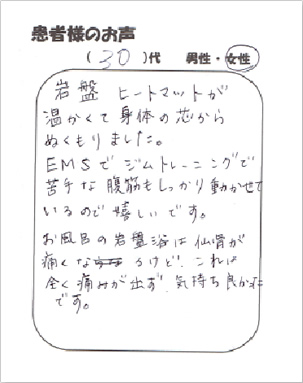 患者様のお声
(30)代 男性・女性
岩盤 ヒートマットが
温かくて身体の芯から
ぬくもりました。
EMSでジムトレーニングで
苦手な腹筋もしっかり動かせて
いるので嬉しいです。
お風呂の岩盤浴は仙骨が
痛くなるけど、これは
全く痛みが出ず、気持ち良かった
です。